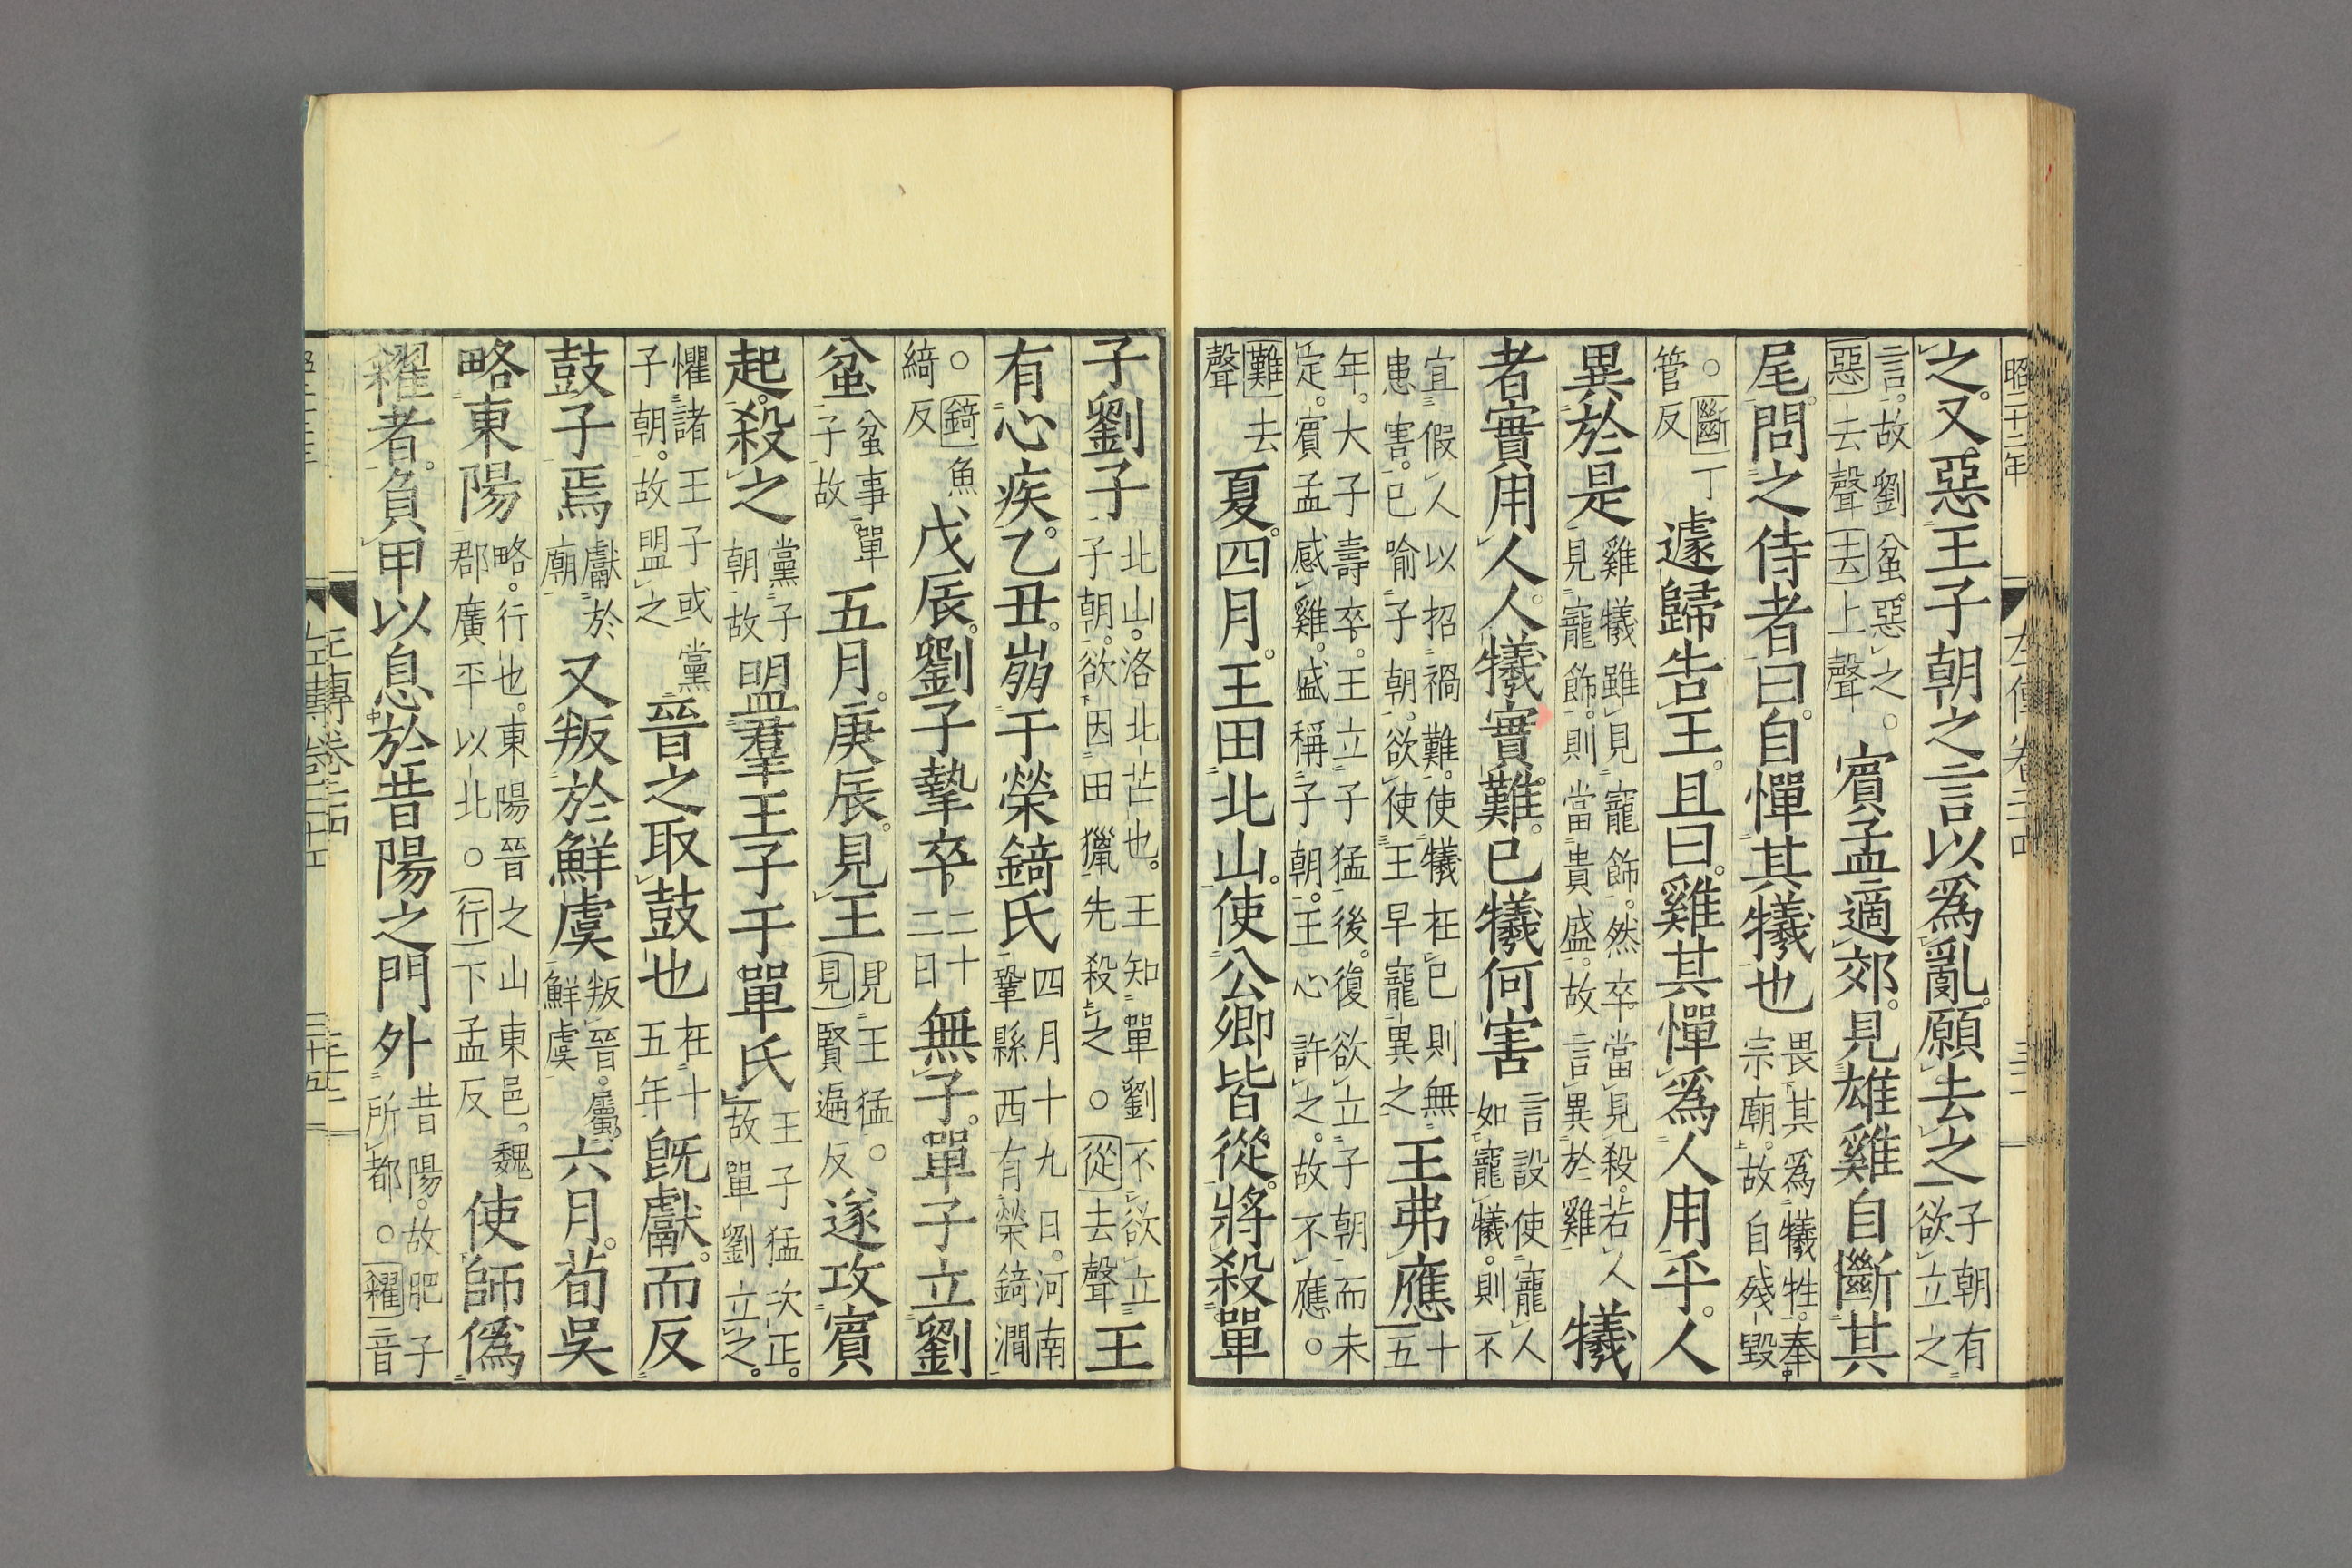 昭二十二年　左傳卷二四　三二
之。又惡王子朝之言以爲亂。願去之子朝有欲立之
言。故劉盆惡之。惡去聲去上聲賓孟適郊。見雄雞自斷其
尾。問之侍者曰。自憚其犧也畏其爲犧牲。奉宗廟。故自殘毀
○斷丁管反遽歸告王。且曰。雞其憚爲人用乎。人
異於是雞犧雖見寵飾。然卒當見殺。若人見寵飾。則當貴盛。故言異於雞犧
者實用人。人犧實難。已犧何害言設使寵人如寵犧。則不
宜假人以招禍難。使犧在已則無患害。已喻子朝。欲使王早寵異之王弗應十五
年。大子壽卒。王立子猛後。復欲立子朝而未定。賓孟感雞。盛稱子朝。王心許之。故不應○
難去聲夏。四月。王田北山。使公卿皆從。將殺單
子劉子北山。洛北芒也。王知單劉不欲立子朝。欲因田獵先殺之○從去聲王
有心疾。乙丑。崩于榮錡氏四月十九日。河南鞏縣西有榮錡澗
○錡魚綺反戊辰。劉子摯卒二十二日無子。單子立劉
盆盆事單子故五月。庚辰。見王見王猛。見賢遍反遂攻賓
起。殺之黨子朝故盟羣王子于單氏王子猛次正。故單劉立之。
懼諸王子或黨子朝。故盟之晉之取鼓也在十五年既獻。而反
鼓子焉獻於廟又叛於鮮虞叛晉。屬鮮虞六月。荀吳
略東陽略。行也。東陽晉之山東邑。魏郡廣平以北○行下孟反使師僞
糴者。負甲以息於昔陽之門外昔陽。故肥子所都○糴音